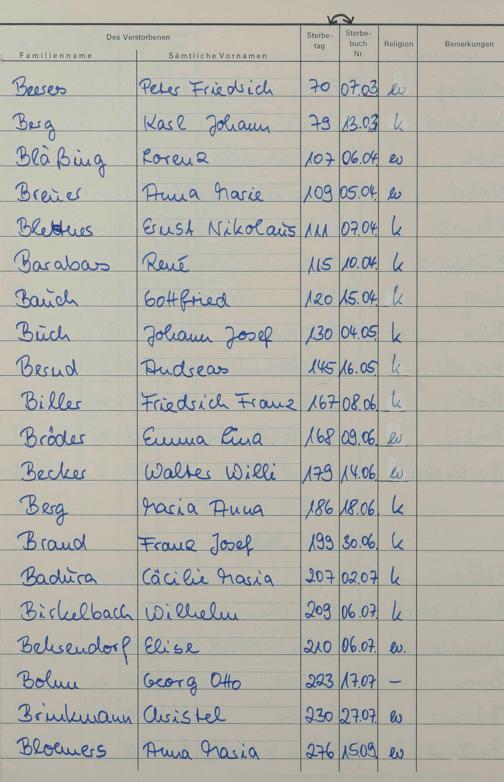 Des Verstorbenen
Sterbe-tag Sterbe-buch Nr. Religion Bemerkungen
Familienname Sämtliche Vornamen
Beeres Peter Friedrich 70 07.03 ev
Berg Karl Johann 79 13.03 k
Bläßing Lorenz 107 06.04 ev
Breuer Anna Marie 109 05.04. ev
Ernst Nikolaus 111 07.04 k
Barabas René 115 10.04. k
Bauch Gottfried 120 15.04. k
Buch Johann Josef 130 04.05 k
Bernd Andreas 145 16.05 k
Biller Friedrich Franz 167 08.06. k
Bröder Emma Lina 168 09.06. ev
Becker Walter Willi 179 14.06. ev
Berg Maria Anna 186 18.06. k
Brand Franz Josef 199 30.06. k
Badura Cäcilie Maria 207 02.07 k
Birkelbach Wilhelm 209 06.07. k
Behsendorf Elise 210 06.07. ev.
Bohm Georg Otto 223 17.07 –
Brinkmann Christel 230 27.07. ev
Bloemers Anna Maria 276 15.09. ev